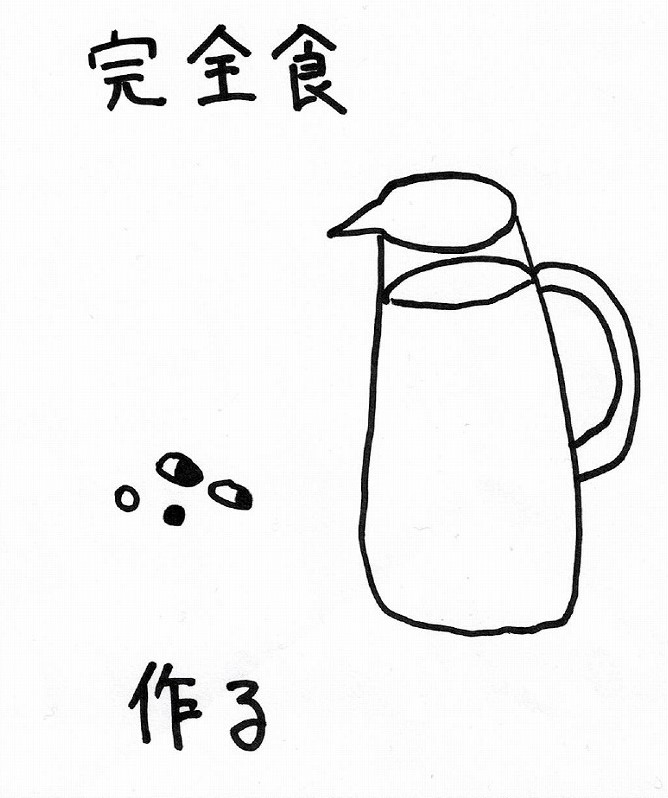 完全食
作る